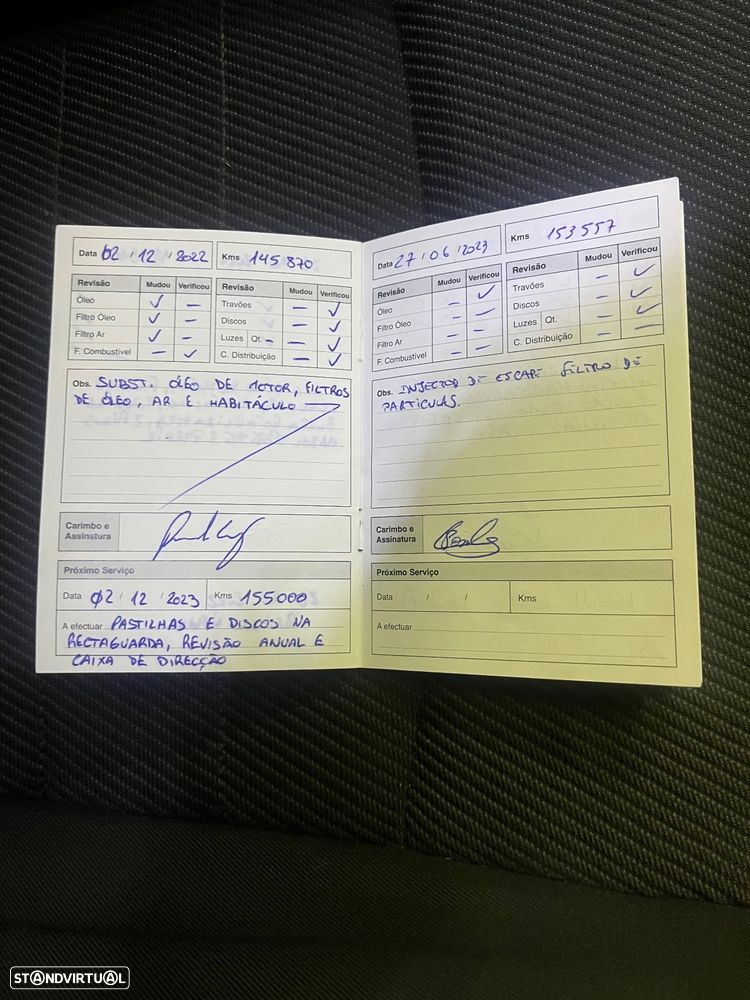 Data 02 / 12 / 2022 Kms 145 870
Revisão Mudou Verificou Revisão Mudou Verificou
Óleo ✓ — Travões — ✓
Filtro Óleo ✓ — Discos — ✓
Filtro Ar ✓ — Luzes Qt. — — ✓
F. Combustível — ✓ C. Distribuição — ✓
Obs. SUBST. ÓLEO DE MOTOR, FILTROS
DE ÓLEO, AR E HABITÁCULO —
Carimbo e
Assinatura
Próximo Serviço
Data 02 / 12 / 2023 Kms 155000
A efectuar PASTILHAS E DISCOS NA
RECTAGUARDA, REVISÃO ANUAL E
CAIXA DE DIRECÇÃO
Data 27 / 06 / 2023 Kms 153557
Revisão Mudou Verificou Revisão Mudou Verificou
Óleo — ✓ Travões — ✓
Filtro Óleo — — Discos — ✓
Filtro Ar — — Luzes Qt. — ✓
F. Combustível — — C. Distribuição — —
Obs. INJECTOR DE ESCAPE FILTRO DE
PARTICULAS.
Carimbo e
Assinatura
Próximo Serviço
Data / / Kms
A efectuar
STANDVIRTUAL